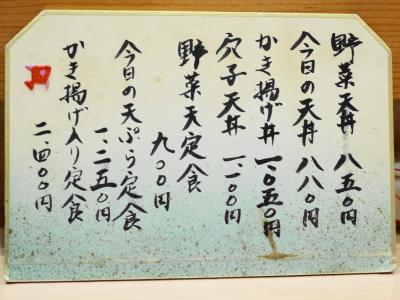 野菜天丼 八五〇円
今日の天丼 八八〇円
かき揚げ丼 一、〇五〇円
穴子天丼 一、一〇〇円
野菜天定食
九〇〇円
今日の天ぷら定食
一、二五〇円
かき揚げ入り定食
二、四〇〇円